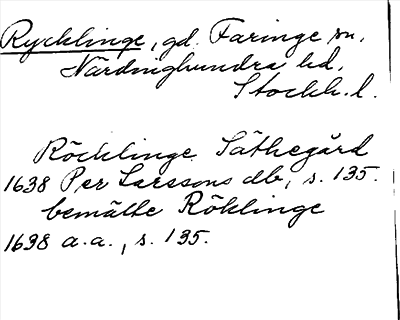 Rycklinge, gd. Faringe sn,
Närdinghundra hd,
Stockh. l.
Röcklinge Säthegård
1638 Per Larssons db, s. 135.
bemälte Röklinge
1638 a.a., s. 135.